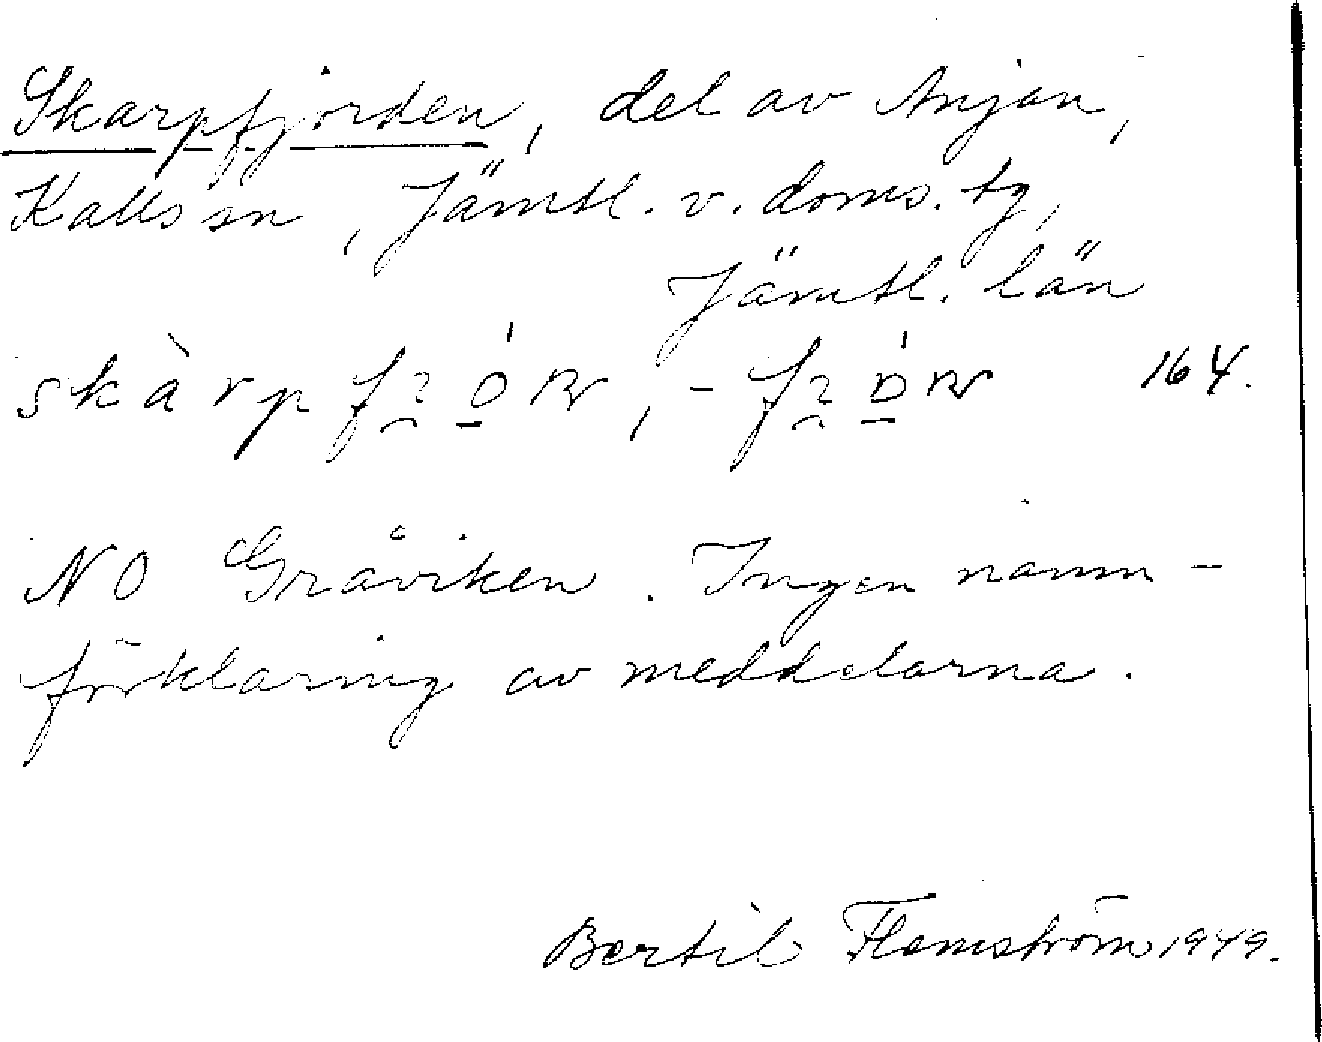 Skarpfjorden, del av Anjan,
Kalls sn, Jämtl. v. doms. tg,
Jämtl. län
skàrp 164.
NO Gråviken. Ingen namn-
förklaring av meddelarna.
Bertil Flemström 1949.